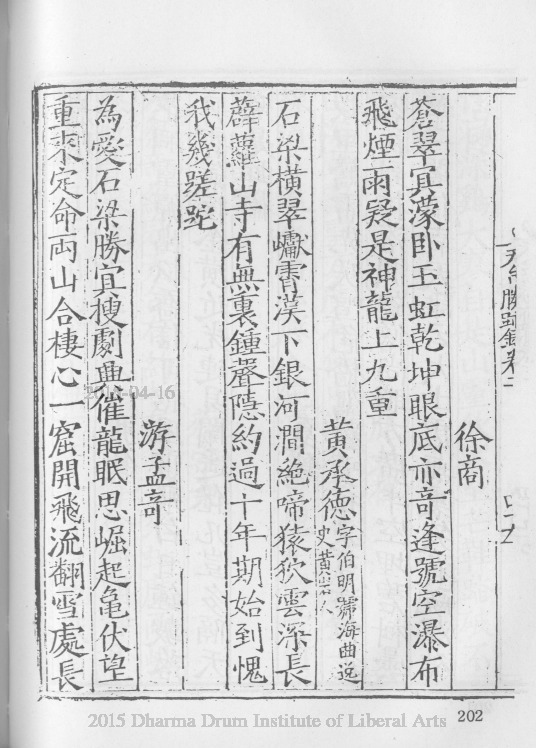 天台勝蹟錄卷二
徐商
蒼翠冥濛卧玉虹乾坤眼底亦奇逢號空瀑布
飛煙雨疑是神龍上九重
黄承德字伯明號海曲逸
史黄岩人
石梁橫翠巘霄漢下銀河澗絶啼猿狖雲深長
薜蘿山寺有無裏鍾聲隱約過十年期始到愧
我幾蹉跎
游孟奇
為愛石梁勝宜搜劇興催龍眠思崛起龜伏望
重來定命両山合棲心一窟開飛流翻雪處長
2014-04-16
2015 Dharma Drum Institute of Liberal Arts
202